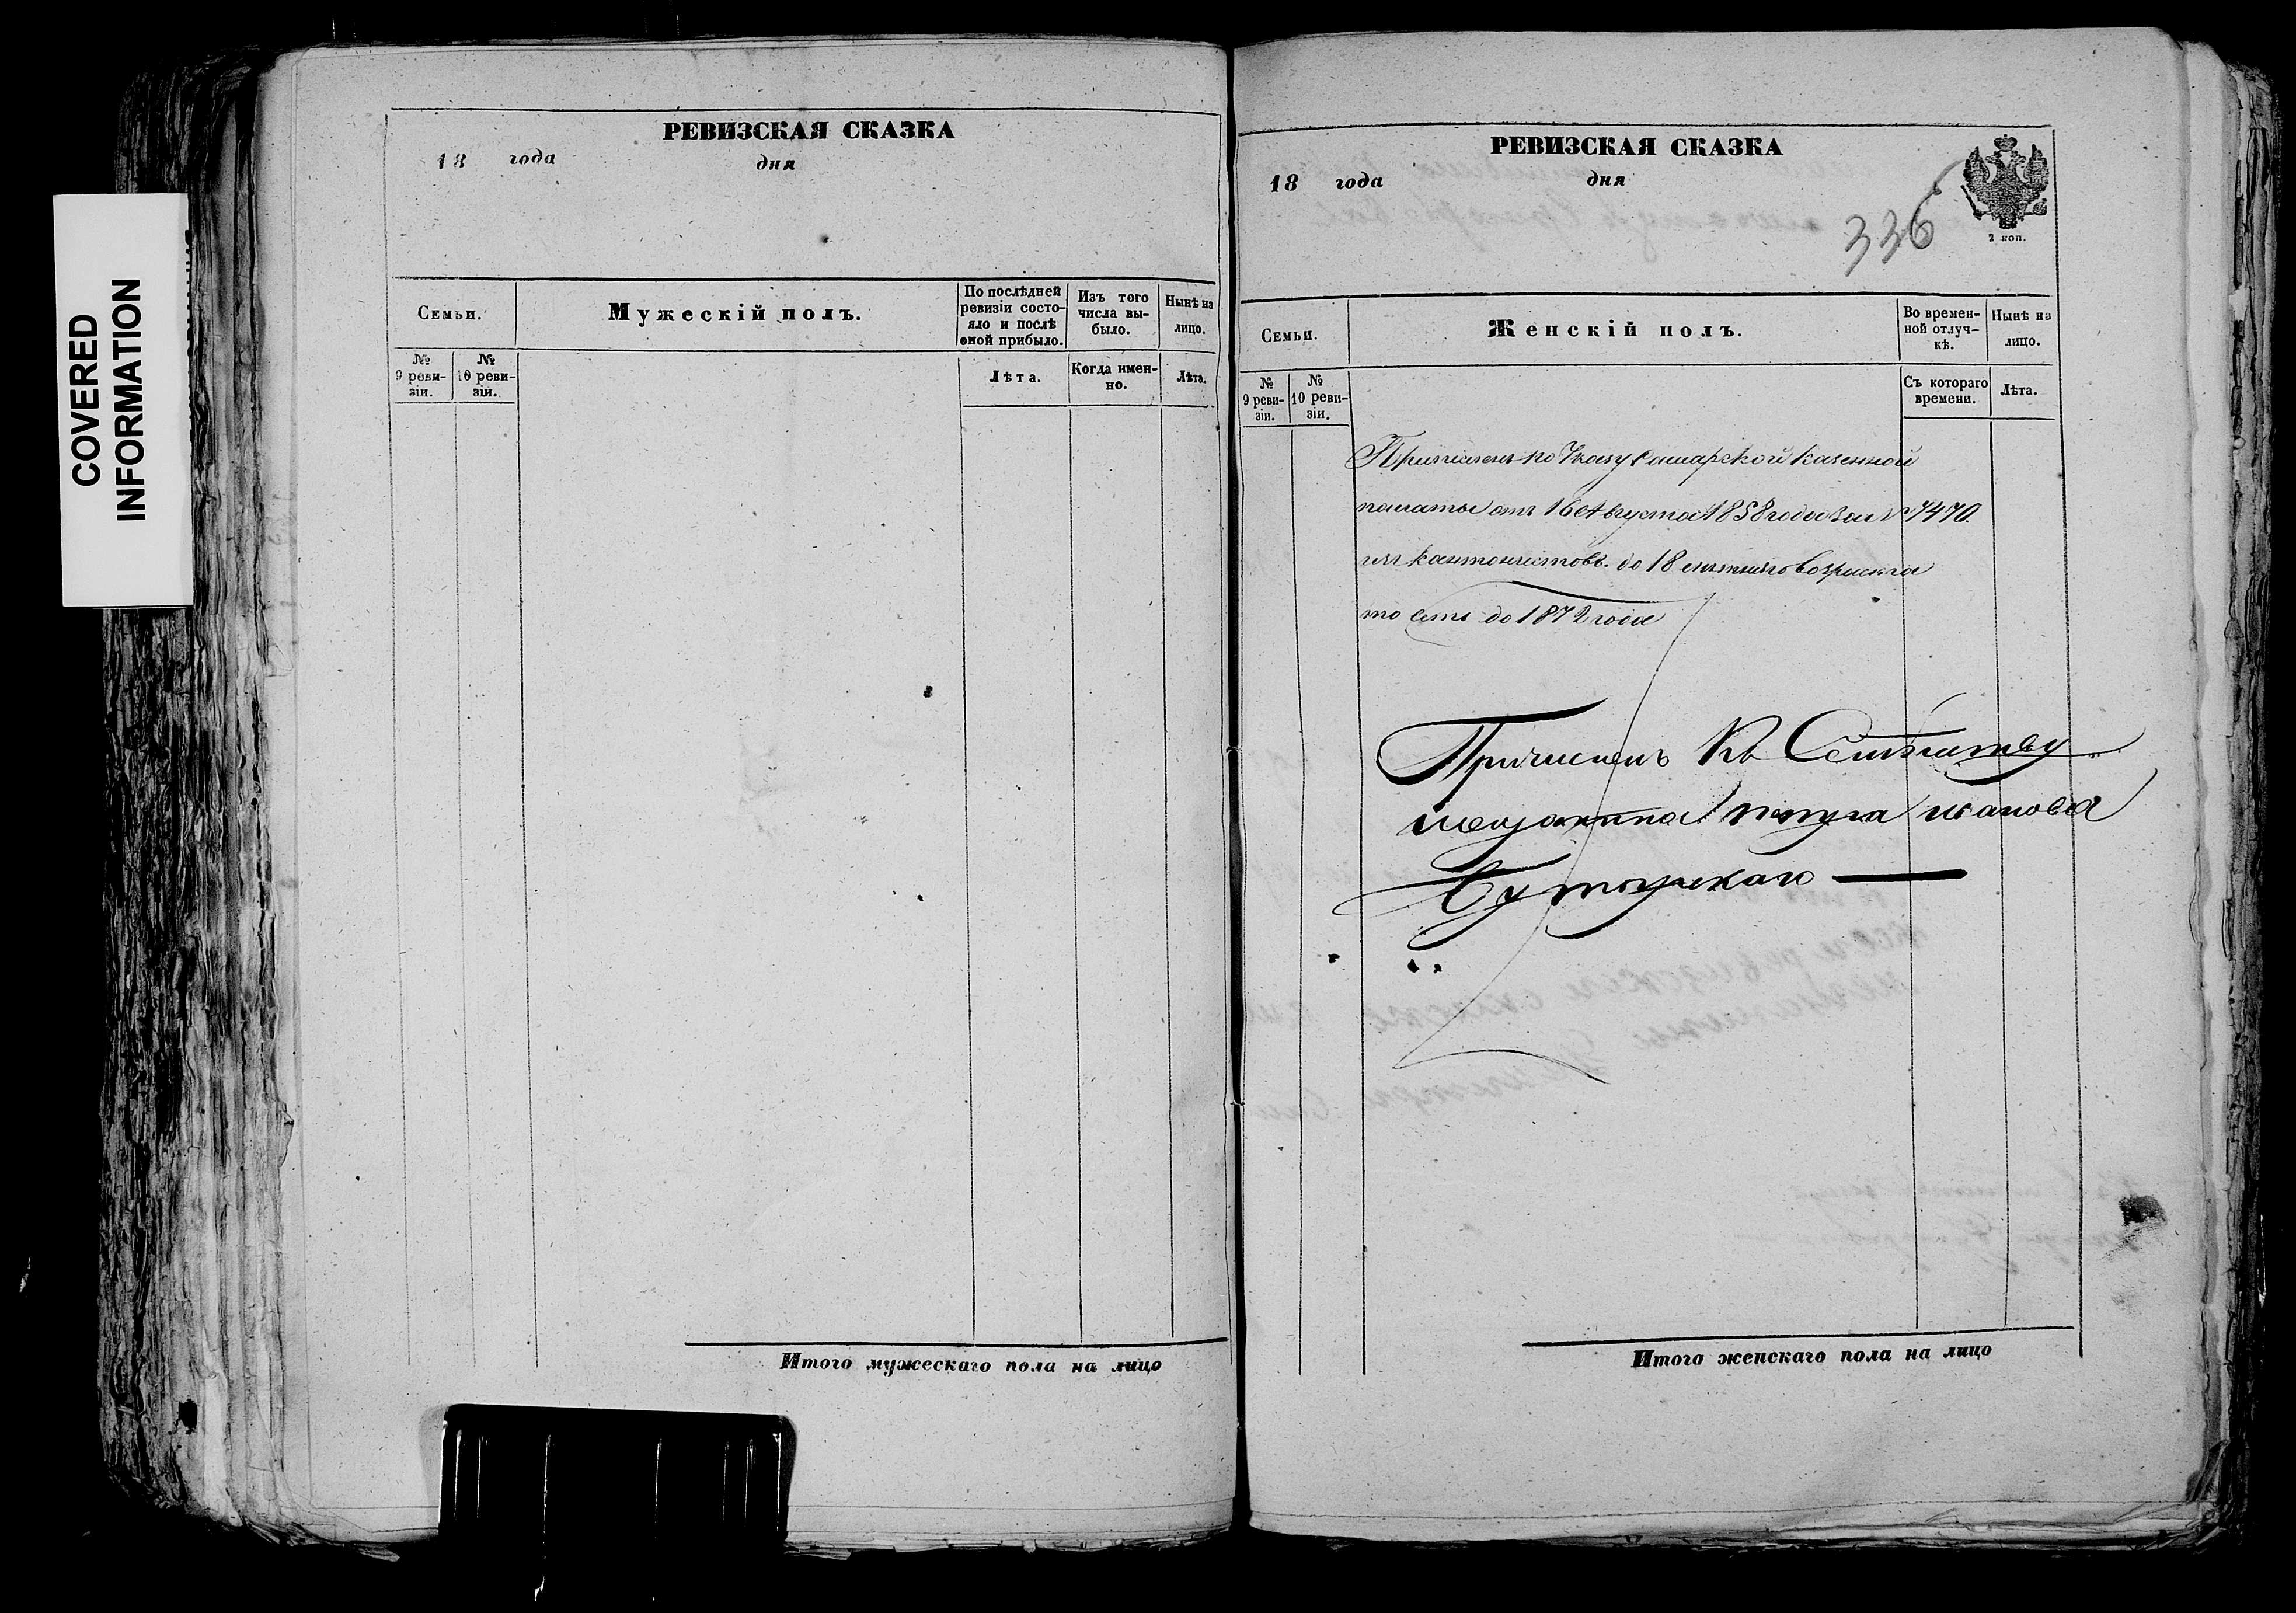 COVERED
INFORMATION
РЕВИЗСКАЯ СКАЗКА
18 года дня
Семьи.
Мужескій полъ.
По послѣдней
ревизіи состо-
яло и послѣ
оной прибыло.
Изъ того
числа вы-
было.
Нынѣ на
лицо.
№
9 реви-
зіи.
№
10 реви-
зіи.
Лѣта.
Когда имен-
но.
Лѣта.
Итого мужескаго пола на лицо
РЕВИЗСКАЯ СКАЗКА
18 года дня
336
2 коп.
Семьи.
Женскій полъ.
Во времен-
ной отлуч-
кѣ.
Нынѣ на
лицо.
№
9 реви-
зіи.
№
10 реви-
зіи.
Съ котораго
времени.
Лѣта.
по Указу Самарской Казенной
палаты отъ 16 Августа 1858 года за № 7470.
изъ кантонистовъ. до 18 лѣтняго возраста
то есть до 1872 года
Причисленъ Къ Семѣйству
мещанина Петра Иванова
Итого женскаго пола на лицо